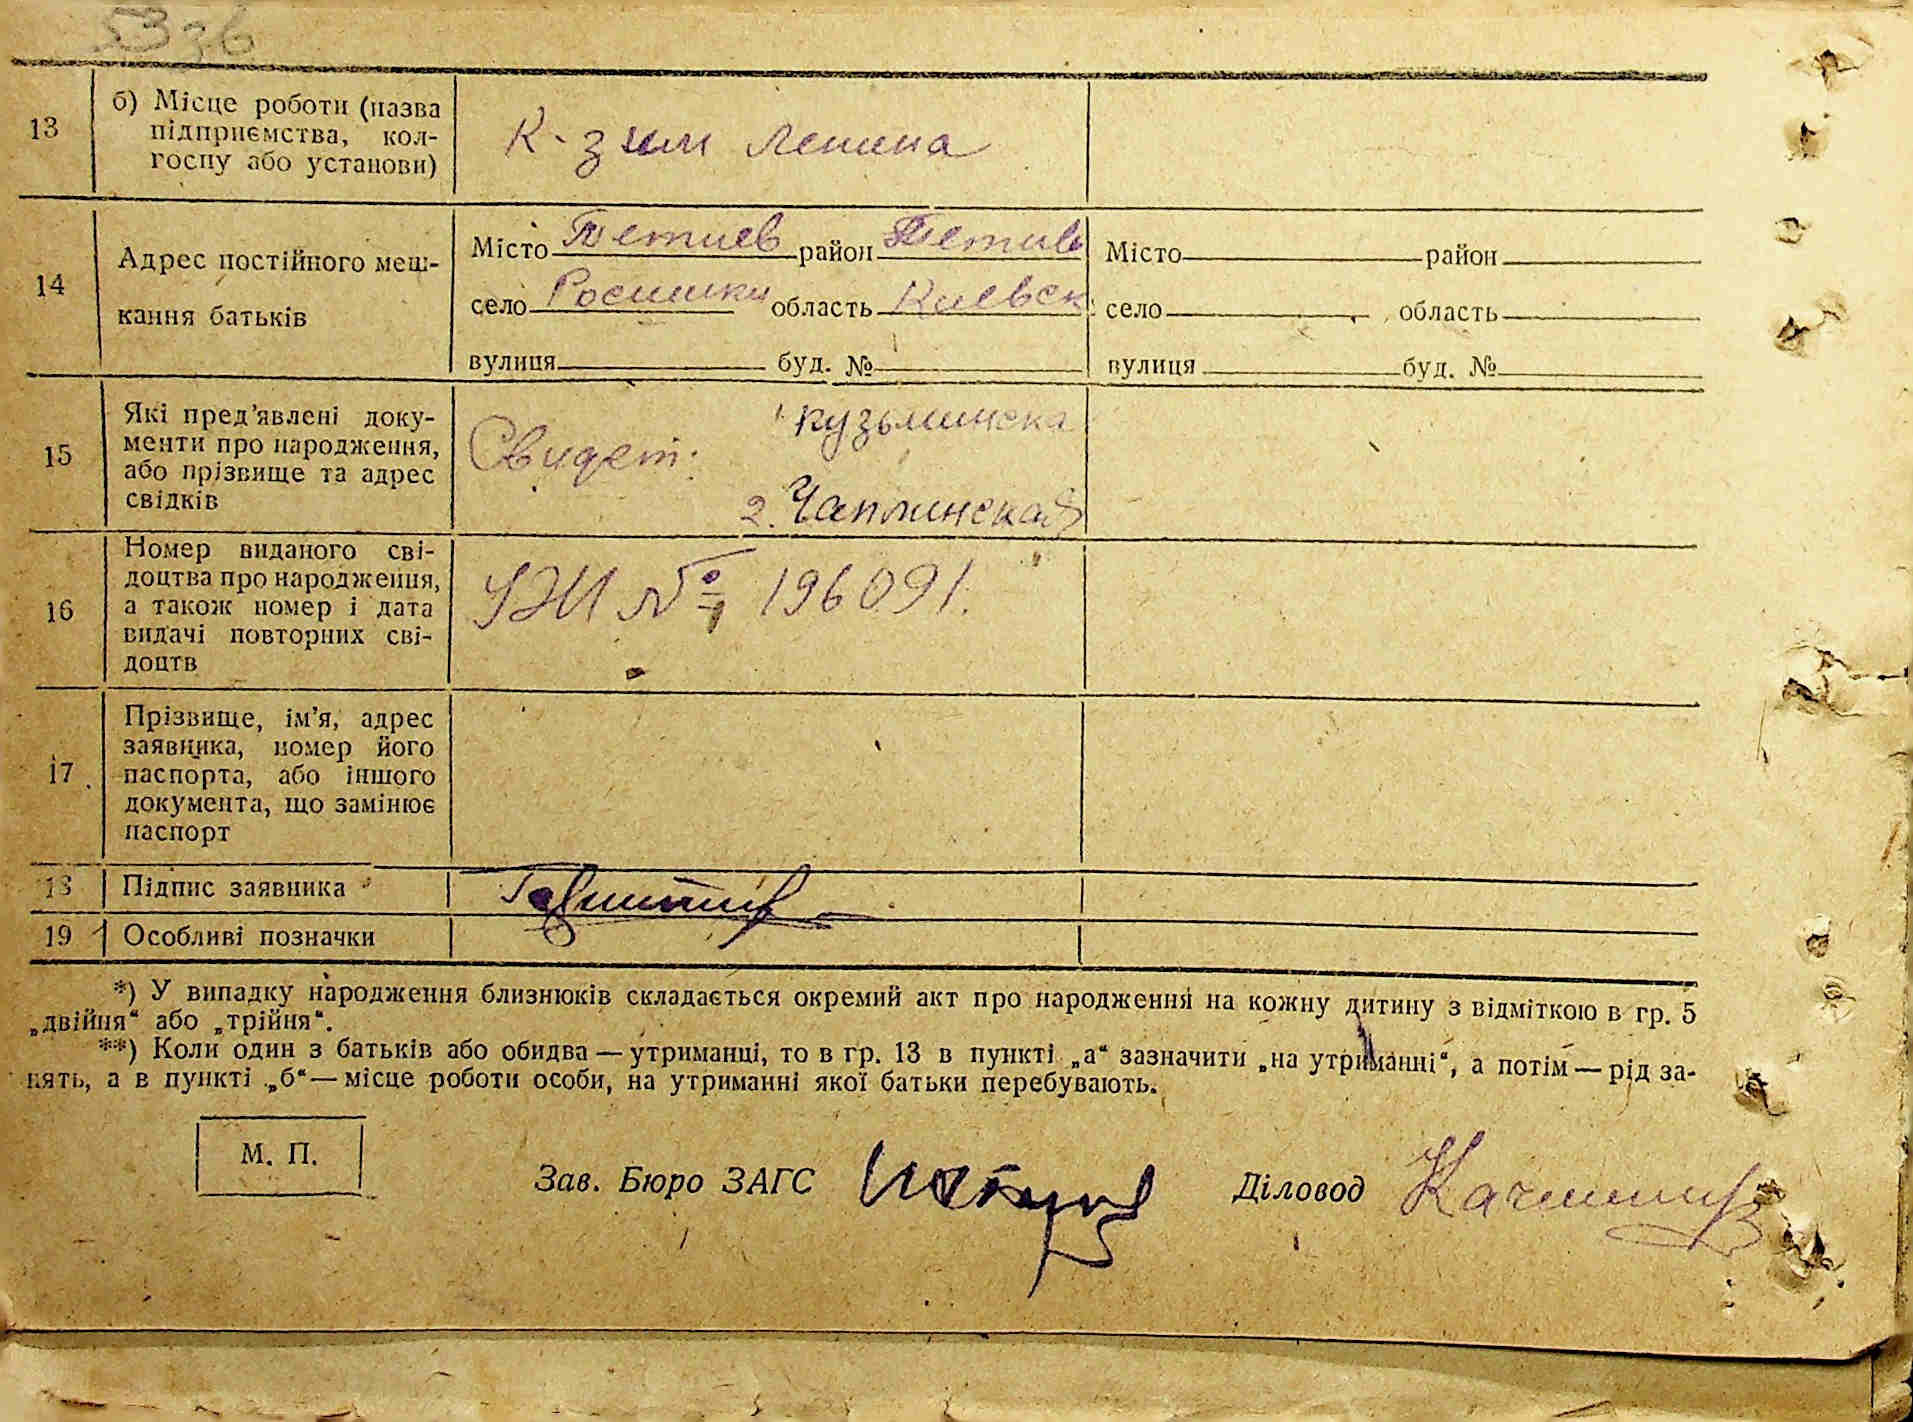 53 зв
13
б) Місце роботи (назва
підприємства, кол-
госпу або установи)
К-з им Ленина
14
Адрес постійного меш-
кання батьків
Місто Тетиев район Тетиев
село Росишки область Киевск
вулиця буд. №
Місто район
село область
вулиця буд. №
15
Які пред’явлені доку-
менти про народження,
або прізвище та адрес
свідків
Свидет: 1 Кузьминска
2. Чаплинская
16
Номер виданого сві-
доцтва про народження,
а також номер і дата
видачі повторних сві-
доцтв
УЖИ № 196091.
17
Прізвище, ім’я, адрес
заявника, номер його
паспорта, або іншого
документа, що замінює
паспорт
18
Підпис заявника
19
Особливі позначки
*) У випадку народження близнюків складається окремий акт про народження на кожну дитину з відміткою в гр. 5
„двійня“ або „трійня“.
**) Коли один з батьків або обидва — утриманці, то в гр. 13 в пункті „а“ зазначити „на утриманні“, а потім — рід за-
нять, а в пункті „б“ — місце роботи особи, на утриманні якої батьки перебувають.
М. П.
Зав. Бюро ЗАГС
Діловод